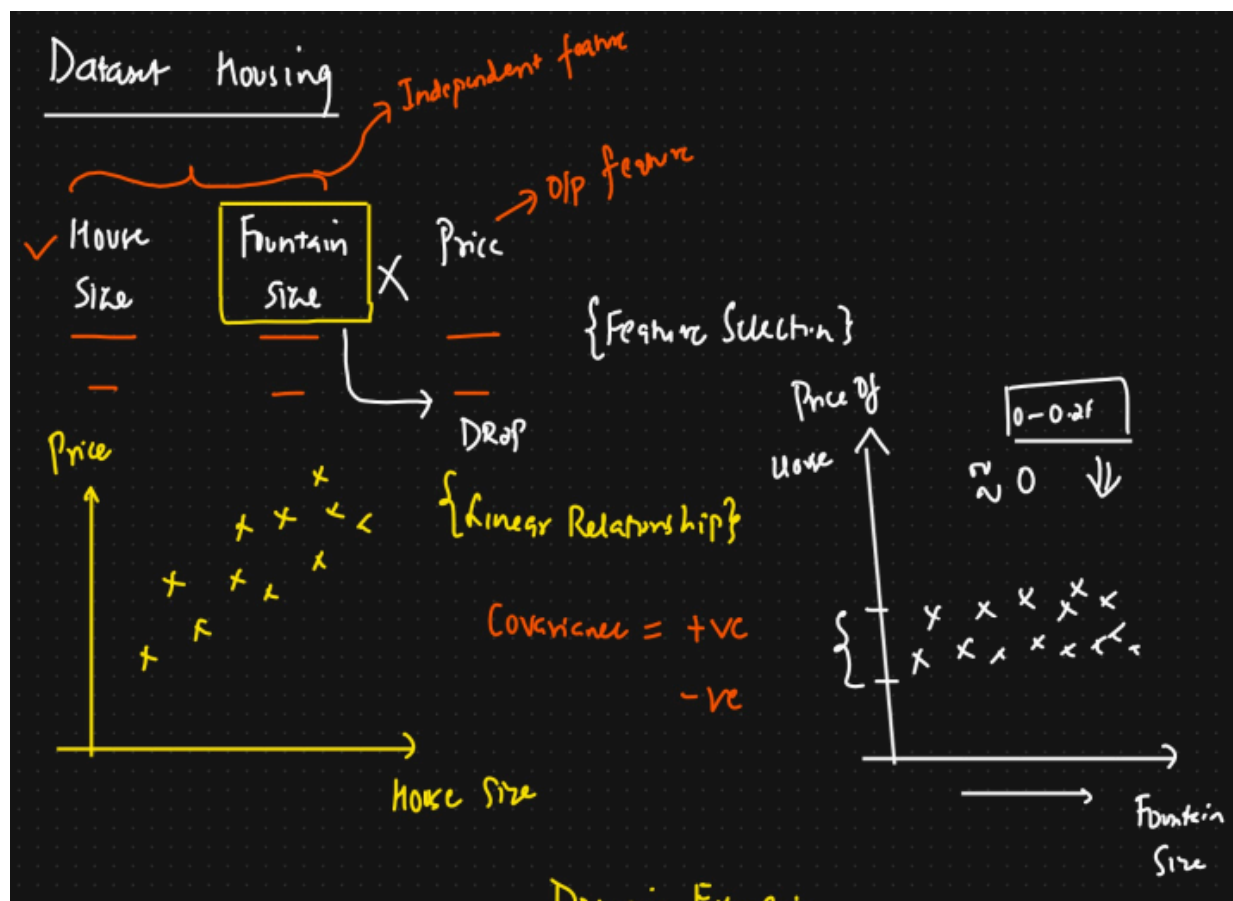 Dataset Housing
Independent feature
O/P feature
House Fountain Price
Size Size X
{Feature Selection}
DROP
Price
{Linear Relationship}
Covariance = +ve
-ve
House Size
Price Of
House
≈ 0
Fountain
Size